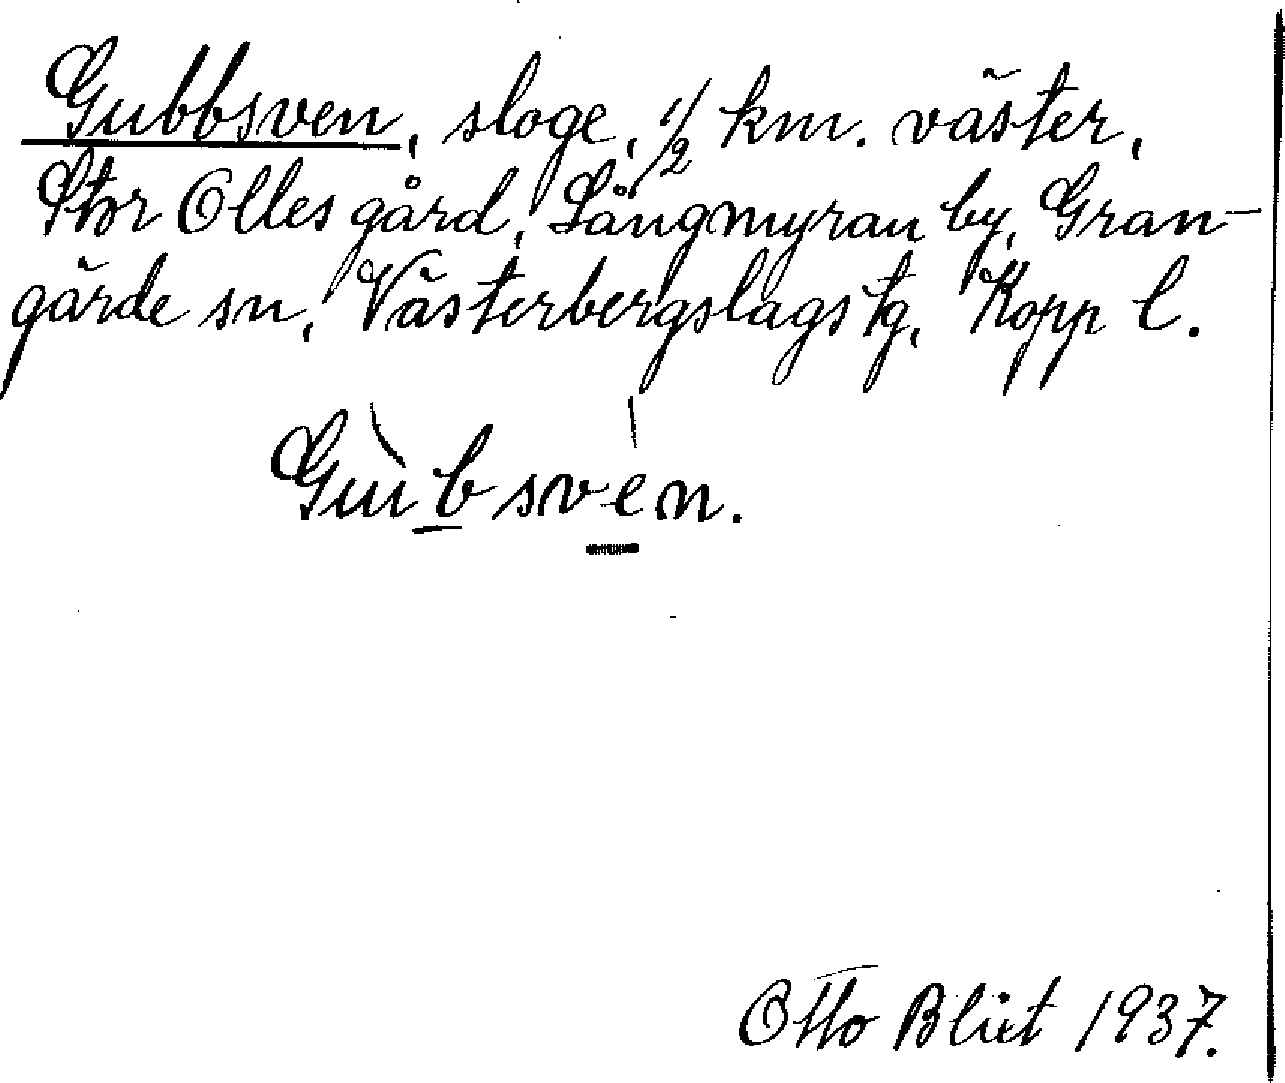 Gubbsven, sloge, 1/2 km. väster,
Stor Olles gård, Långmyran by, Gran-
gärde sn, Västerbergslags tg, Kopp l.
Gùbsven.
Otto Blixt 1937.